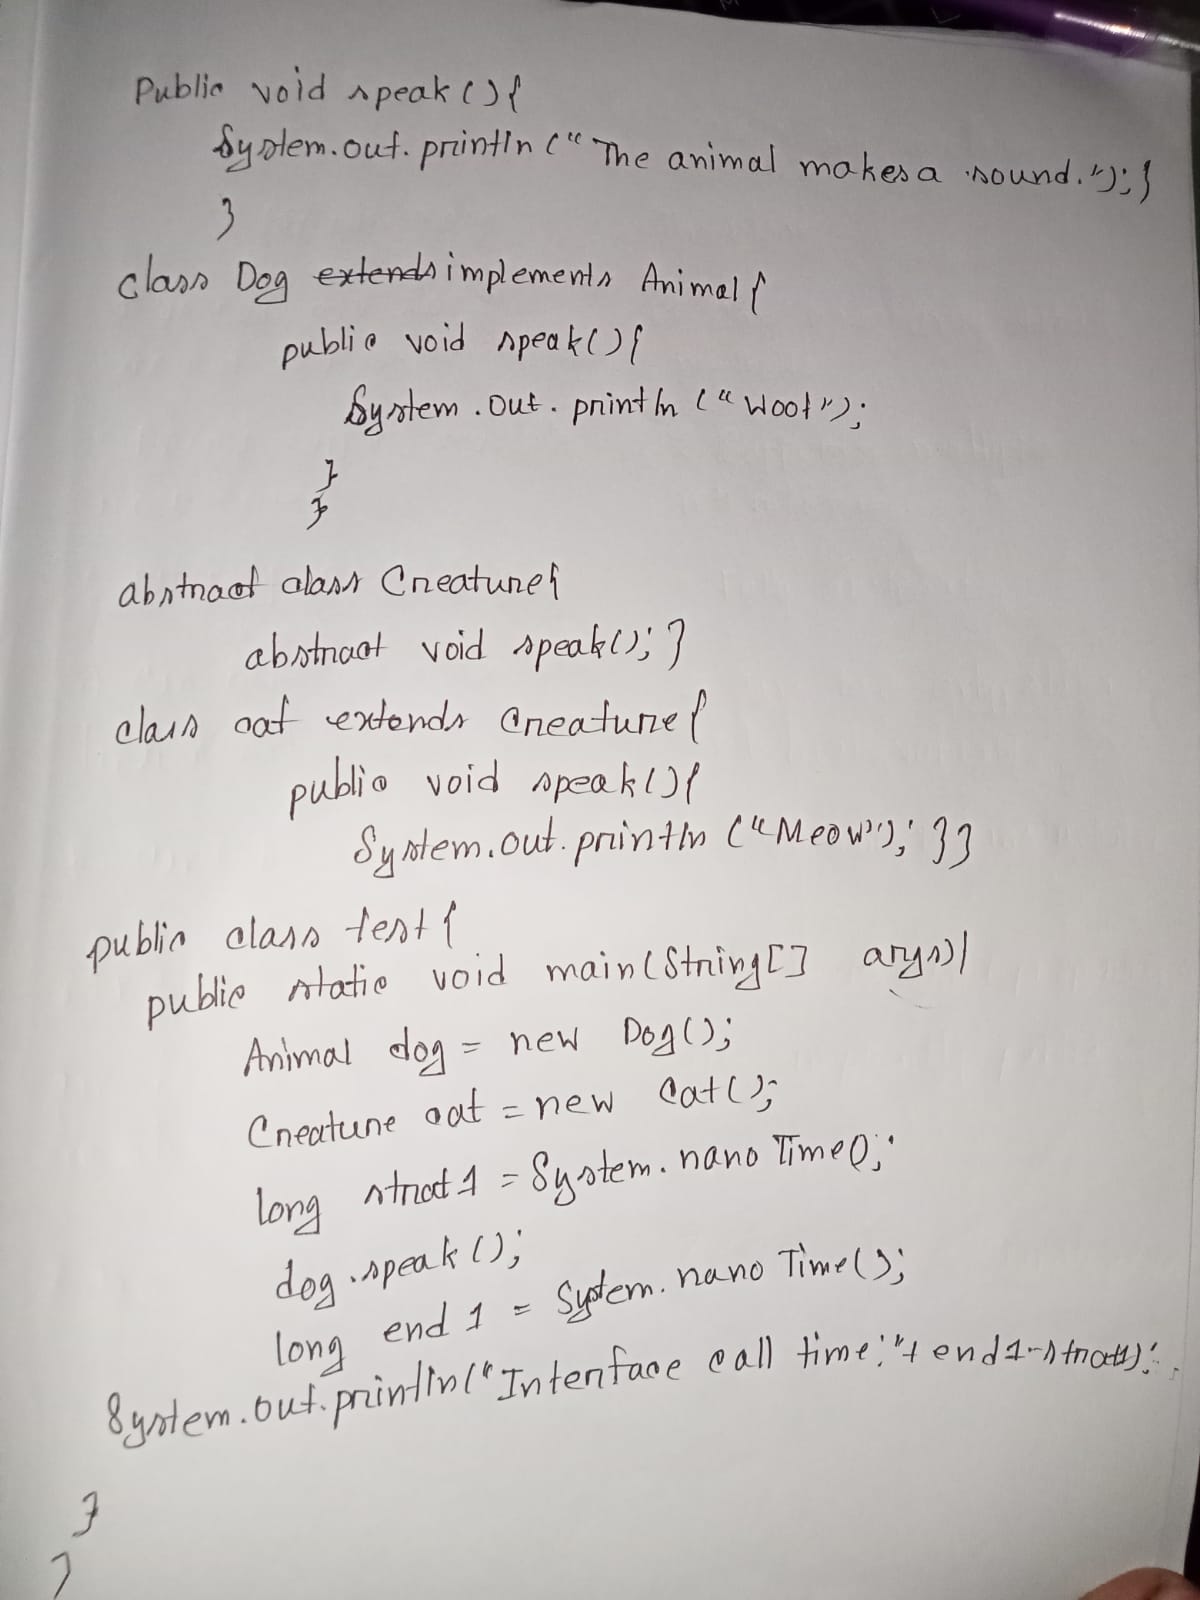 Public void speak(){
System.out.println("The animal makes a sound.");}
}
class Dog extends implements Animal{
public void speak(){
System.out.println("Woof");
}
}
abstract class Creature{
abstract void speak(); }
class cat extends Creature{
public void speak(){
System.out.println("Meow"); }}
public class test{
public static void main(String[] args){
Animal dog = new Dog();
Creature cat = new Cat();
long strat1 = System.nanoTime();
dog.speak();
long end1 = System.nanoTime();
System.out.println("Interface call time:"+ end1-strat1);
}
}